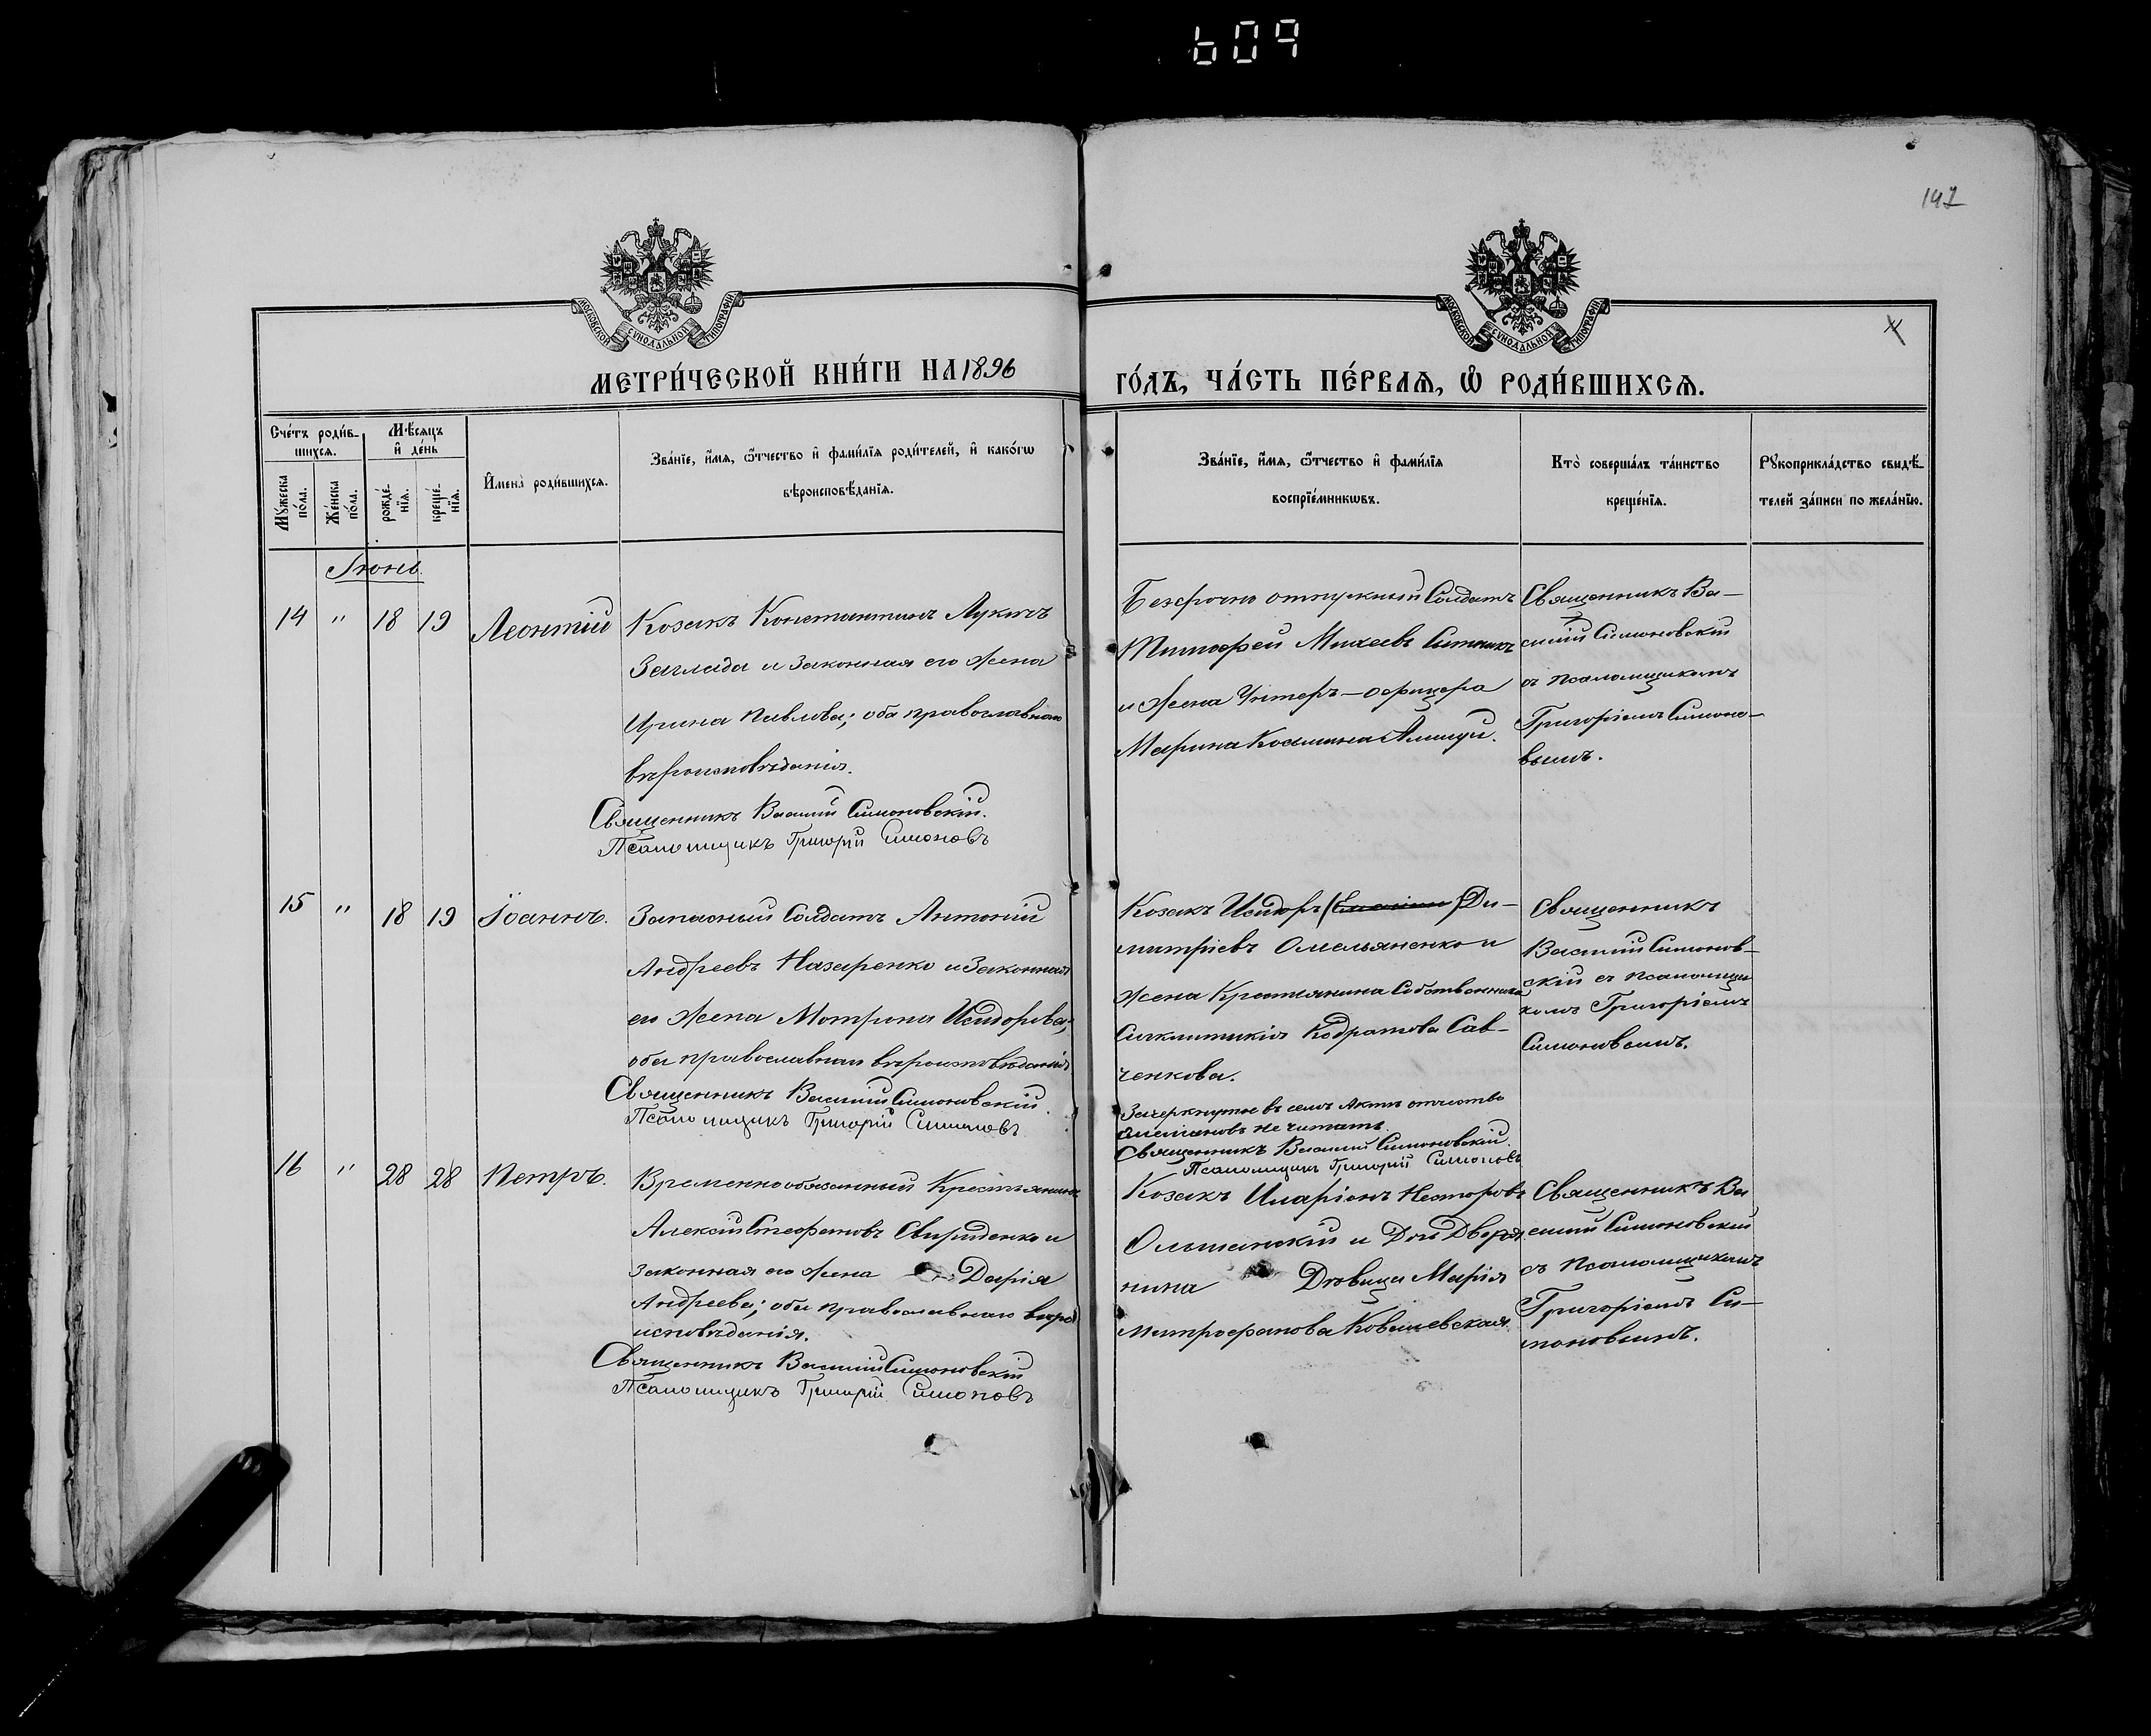 609
147
МОСКОВСКОЙ СУНОДАЛЬНОЙ ТИПОГРАФІИ
МОСКОВСКОЙ СУНОДАЛЬНОЙ ТИПОГРАФІИ
МЕТРИ́ЧЕСКОЙ КНИ́ГИ НА 1896
ГО́ДЪ, ЧА́СТЬ ПЕ́РВАЯ, Ѡ҆ РОДИ́ВШИХСЯ.
Сче́тъ роди́в-
шихся.
Мѣ́сяцъ
и҆ де́нь
Му́жеска
по́ла.
Же́нска
по́ла.
рожде́-
нїя.
креще́-
нїя.
И҆мена̀ роди́вшихся.
Зва́нїе, и҆́мя, ѻ҆́тчество и҆ фами́лїя роди́телей, и҆ како́гѡ
вѣроисповѣ́данїя.
Зва́нїе, и҆́мя, ѻ҆́тчество и҆ фами́лїя
воспрїе́мникѡвъ.
Кто̀ соверша́лъ та́инство
креще́нїя.
Рꙋкоприкла́дство свидѣ́-
телей за́писи по жела́нїю.
Іюнь.
14 " 18 19 Леонтій
Козакъ Константинъ Лукинъ
Заглада и законная его жена
Ирина Павлова; оба православнаго
вѣроисповѣданія.
Священникъ Василій Симоновскій.
Псаломщикъ Григорій Симоновъ
Тимофей Михеевъ Ситникъ
и жена Унтеръ-офицера
Марина Козмина
Священникъ Ва-
силій Симоновскій
съ псаломщикомъ
Григоріемъ Симоно-
вымъ.
15 " 18 19 Іоаннъ.
Запасный Солдатъ Антоній
Андреевъ Назаренко и законная
его жена Мотрона Исидорова;
оба православнаго вѣроисповѣданія
Священникъ Василій Симоновскій.
Псаломщикъ Григорій Симоновъ
Козакъ Исидоръ Ди-
митріевъ Омельяненко и
жена Крестьянина Собственника
Синклитикія Кодратова Сав-
ченкова.
Зачеркнутое въ семъ Актѣ отчество
не читать.
Священникъ Василій Симоновскій.
Псаломщикъ Григорій Симоновъ
Священникъ
Василій Симонов-
скій съ псаломщи
комъ Григоріемъ
Симоновымъ.
16 " 28 28 Петръ.
Временнообязанный Крестьянинъ
Алексій Стефановъ Свириденко и
законная его жена Дарія
Андреева; оба православнаго вѣро
исповѣданія.
Священникъ Василій Симоновскій
Псаломщикъ Григорій Симоновъ
Козакъ Иларіонъ Несторовъ
Ольшанскій и Дочь Дворя
нина Дѣвица Марія
Митрофанова Ковалевская.
Священникъ Ва
силій Симоновскій
съ псаломщикомъ
Григоріемъ Си-
моновымъ.